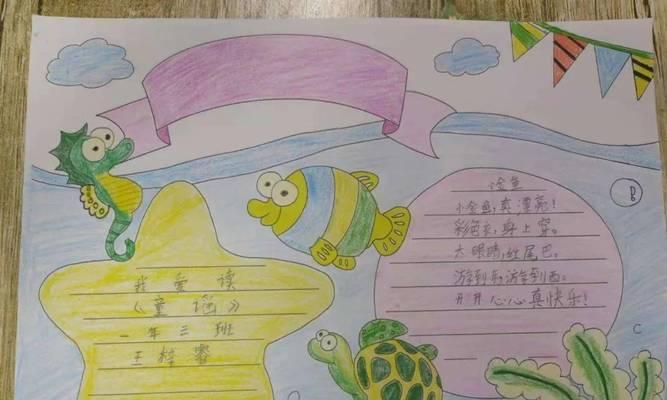 我爱读
《童谣》
一年三班
王梓
小金鱼
小金鱼,真漂亮!
彩色衣,身上穿。
大眼睛,红尾巴,
游到东,游到西。
开开心心真快乐!
B
C